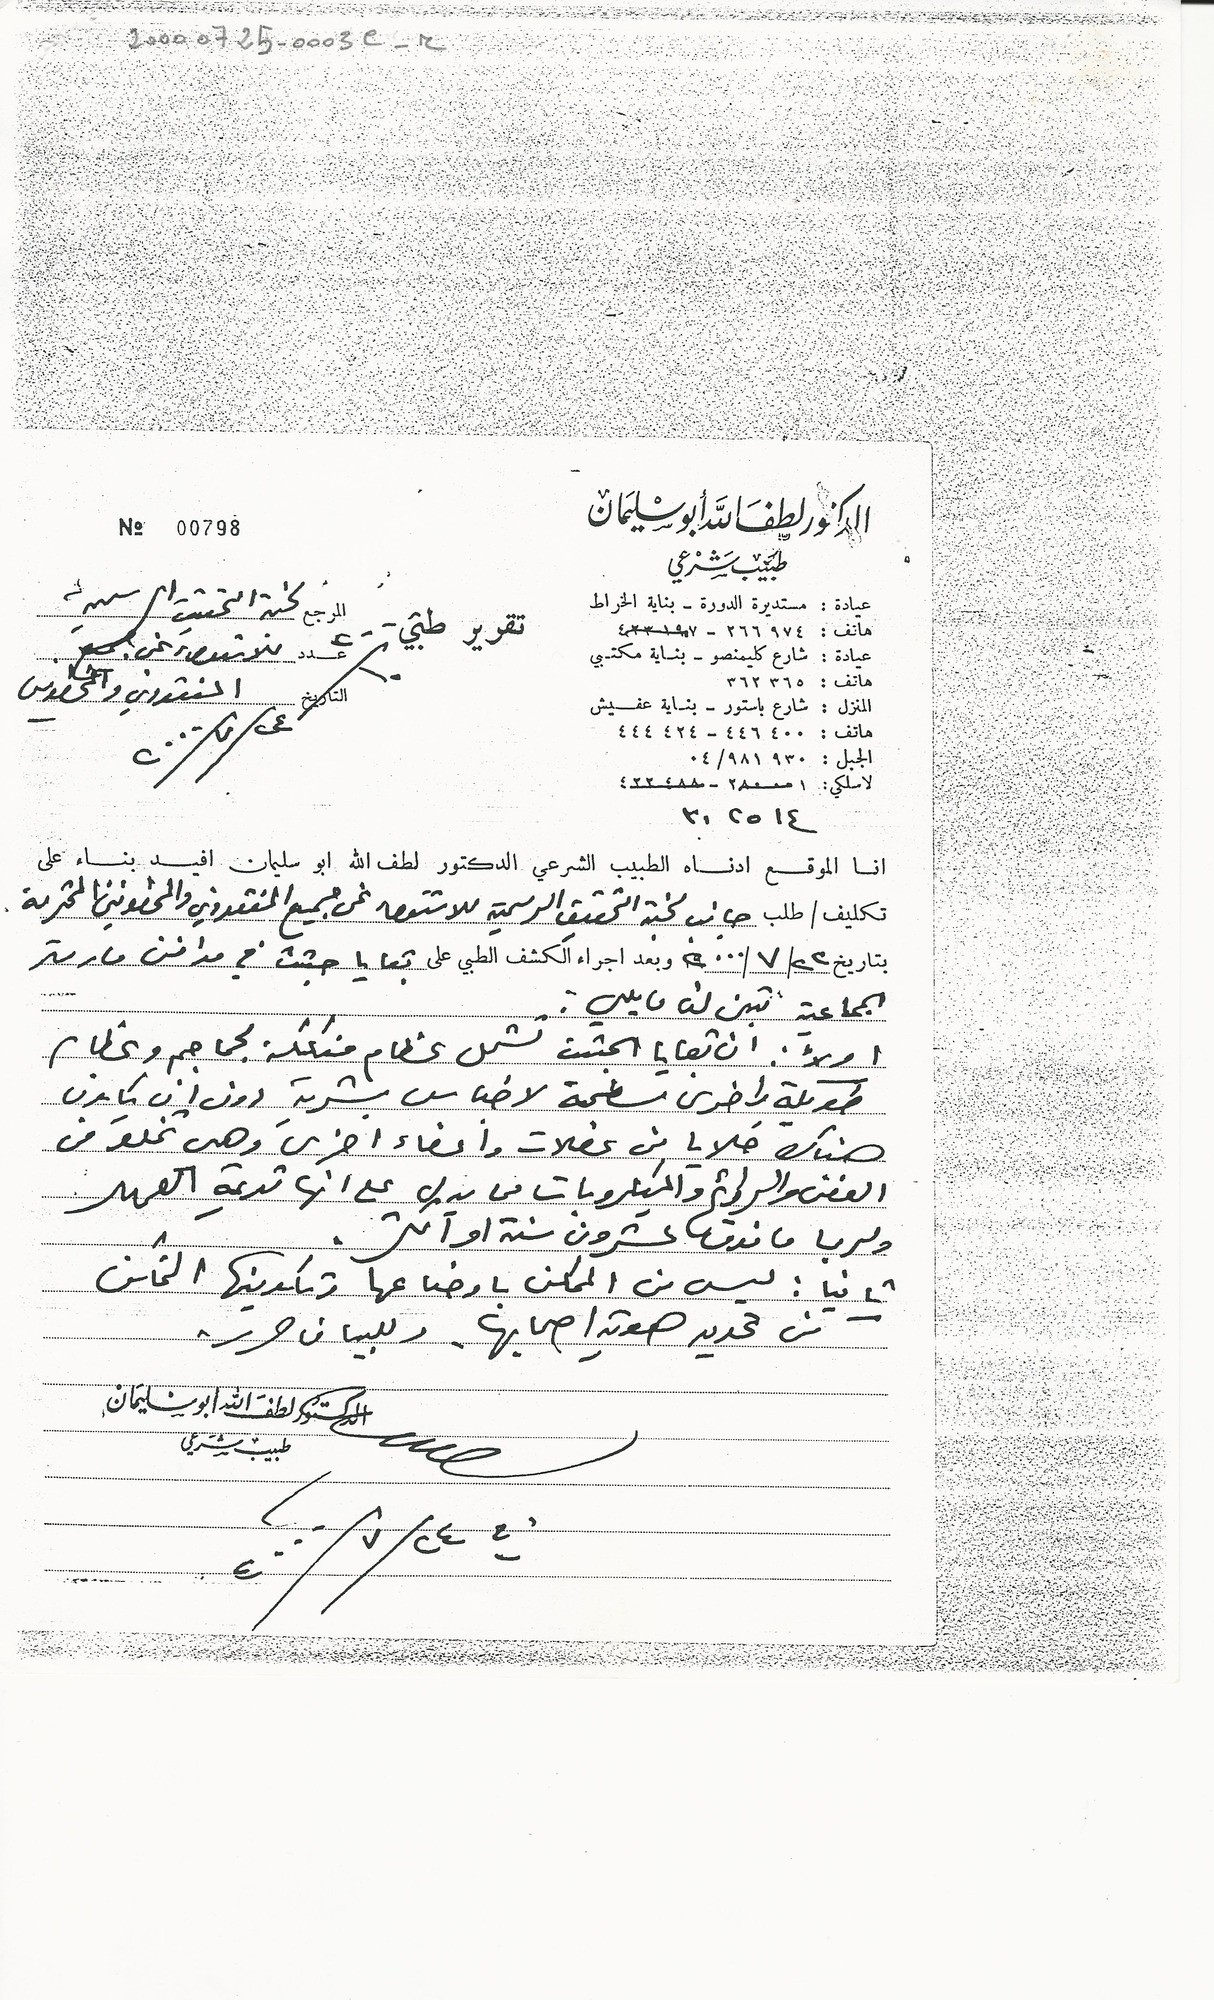 20000725-0003e-r
الدكتور لطف الله أبو سليمان
طبيب شرعي
Nº 00798
عيادة : مستديرة الدورة - بناية الخراط
هاتف : ٢٦٦ ٩٧٤ - ٤٢٣ ١٩٧
عيادة : شارع كليمنصو - بناية مكتبي
هاتف : ٣٦٢ ٣٦٥
المنزل : شارع باستور - بناية عفيش
هاتف : ٤٤٦ ٤٠٠ - ٤٤٤ ٤٢٤
الجبل : ٩٣٠ ٩٨١/٠٤
لاسلكي:
تقرير طبي
المرجع لجنة التحقيق الرسمية
عدد للاستقصاء عن جميع
التاريخ المفقودين والمخطوفين
٢٤/٧/٢٠٠٠
انا الموقع ادناه الطبيب الشرعي الدكتور لطف الله ابو سليمان افيد بناء على
تكليف/طلب جانب لجنة التحقيق الرسمية للاستقصاء عن جميع المفقودين والمخطوفين المحترمة
بتاريخ ٢٢/٧/٢٠٠٠ وبعد اجراء الكشف الطبي على بقايا جثث في مدافن مار متر
الجماعية تبين لنا ما يلي :
اولاً : ان بقايا الجثث تشمل عظام مفككة لجماجم وعظام
طويلة واخرى مسطحة لاجناس بشرية دون ان يكون
هناك خلايا من عضلات واعضاء اخرى وهي تخلو من
العفن والروائح والميكروبات مما يدل على انها قديمة العهد
ولربما ما فوق عشرون سنة او اكثر .
ثانيا : ليس من الممكن باوضاعها وتكوينها
من تحديد هوية اصحابها . وللبيان حرر
الدكتور لطف الله ابو سليمان
طبيب شرعي
في ٢٤/٧/٢٠٠٠